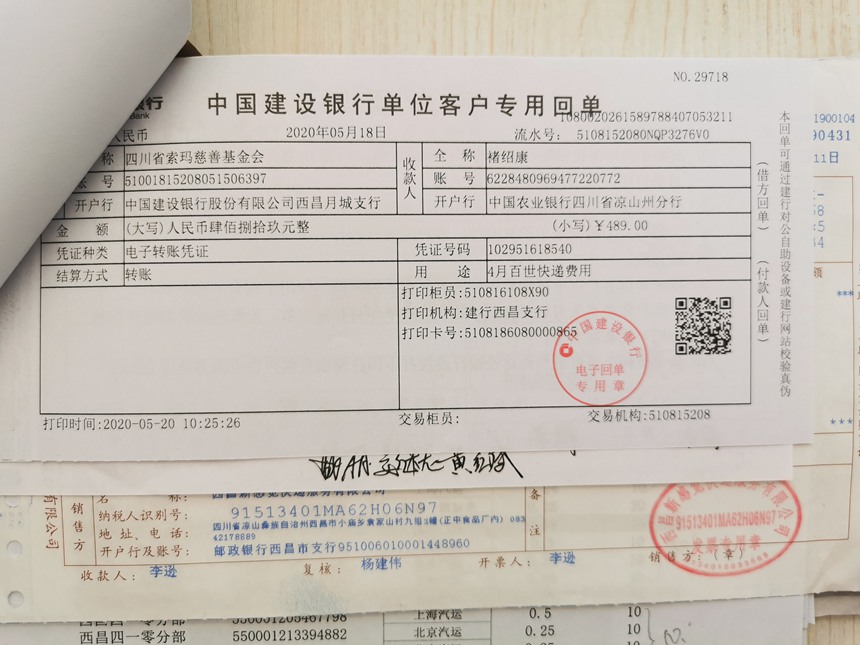 NO.29718
中国建设银行单位客户专用回单
10800202615897884070532​11
人民币 2020年05月18日 流水号: 5108152080NQP3276V0
称 四川省索玛慈善基金会 收款人 全 称 褚绍康
账 号 51001815208051506397 账 号 6228480969477220772
开户行 中国建设银行股份有限公司西昌月城支行 开户行 中国农业银行四川省凉山州分行
金 额 (大写)人民币肆佰捌拾玖元整 (小写)￥489.00
凭证种类 电子转账凭证 凭证号码 102951618540
结算方式 转账 用 途 4月百世快递费用
打印柜员:510816108X90
打印机构:建行西昌支行
打印卡号:5108186080000865
中国建设银行
电子回单
专用章
打印时间:2020-05-20 10:25:26 交易柜员: 交易机构:510815208
本回单可通过建行对公自助设备或建行网站校验真伪
(借方回单)
(付款人回单)
1900104
90431
11日
销售方
纳税人识别号: 91513401MA62H06N97
地址、电话: 四川省凉山彝族自治州西昌市小庙乡袁家山村九组1幢(正中食品厂内) 083
42178889
开户行及账号: 邮政银行西昌市支行951006010001448960
备注
91513401MA62H06N97
发票专用章
收款人: 李逊 复核: 杨建伟 开票人: 李逊 销售方:(章)
西昌四一零分部 550001205467798 上海汽运 0.5 10
西昌四一零分部 550001213394882 北京汽运 0.25 10